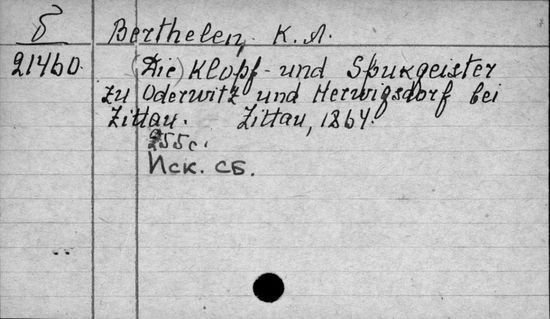 б Berthelen, K. A.
21460. (Die) Klopf- und Spukgeister
zu Oderwitz und Herwigsdorf bei
Zittau. Zittau, 1864.
255 с.
Иск. СБ.